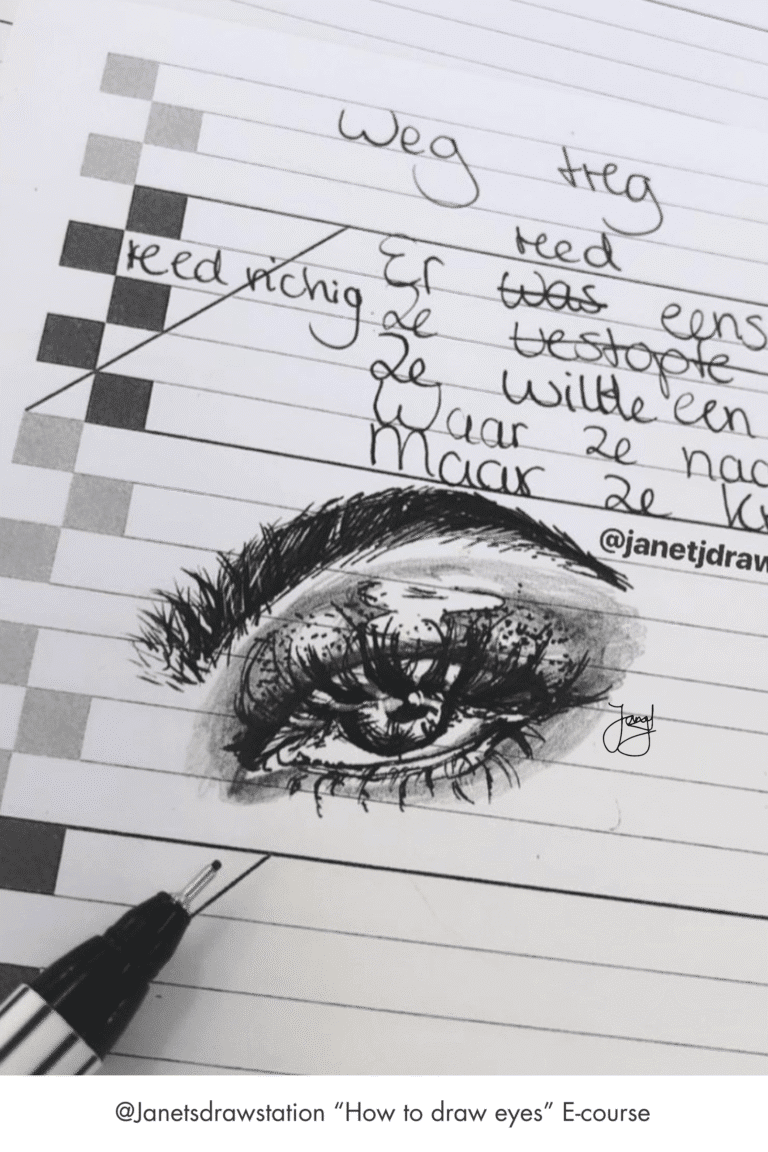 Weg treg
reed
reed richig. Er was eens
Ze vestopte
Ze wilde een
Waar ze nac
Maar ze k
@janetjdraw
@Janetsdrawstation “How to draw eyes” E-course